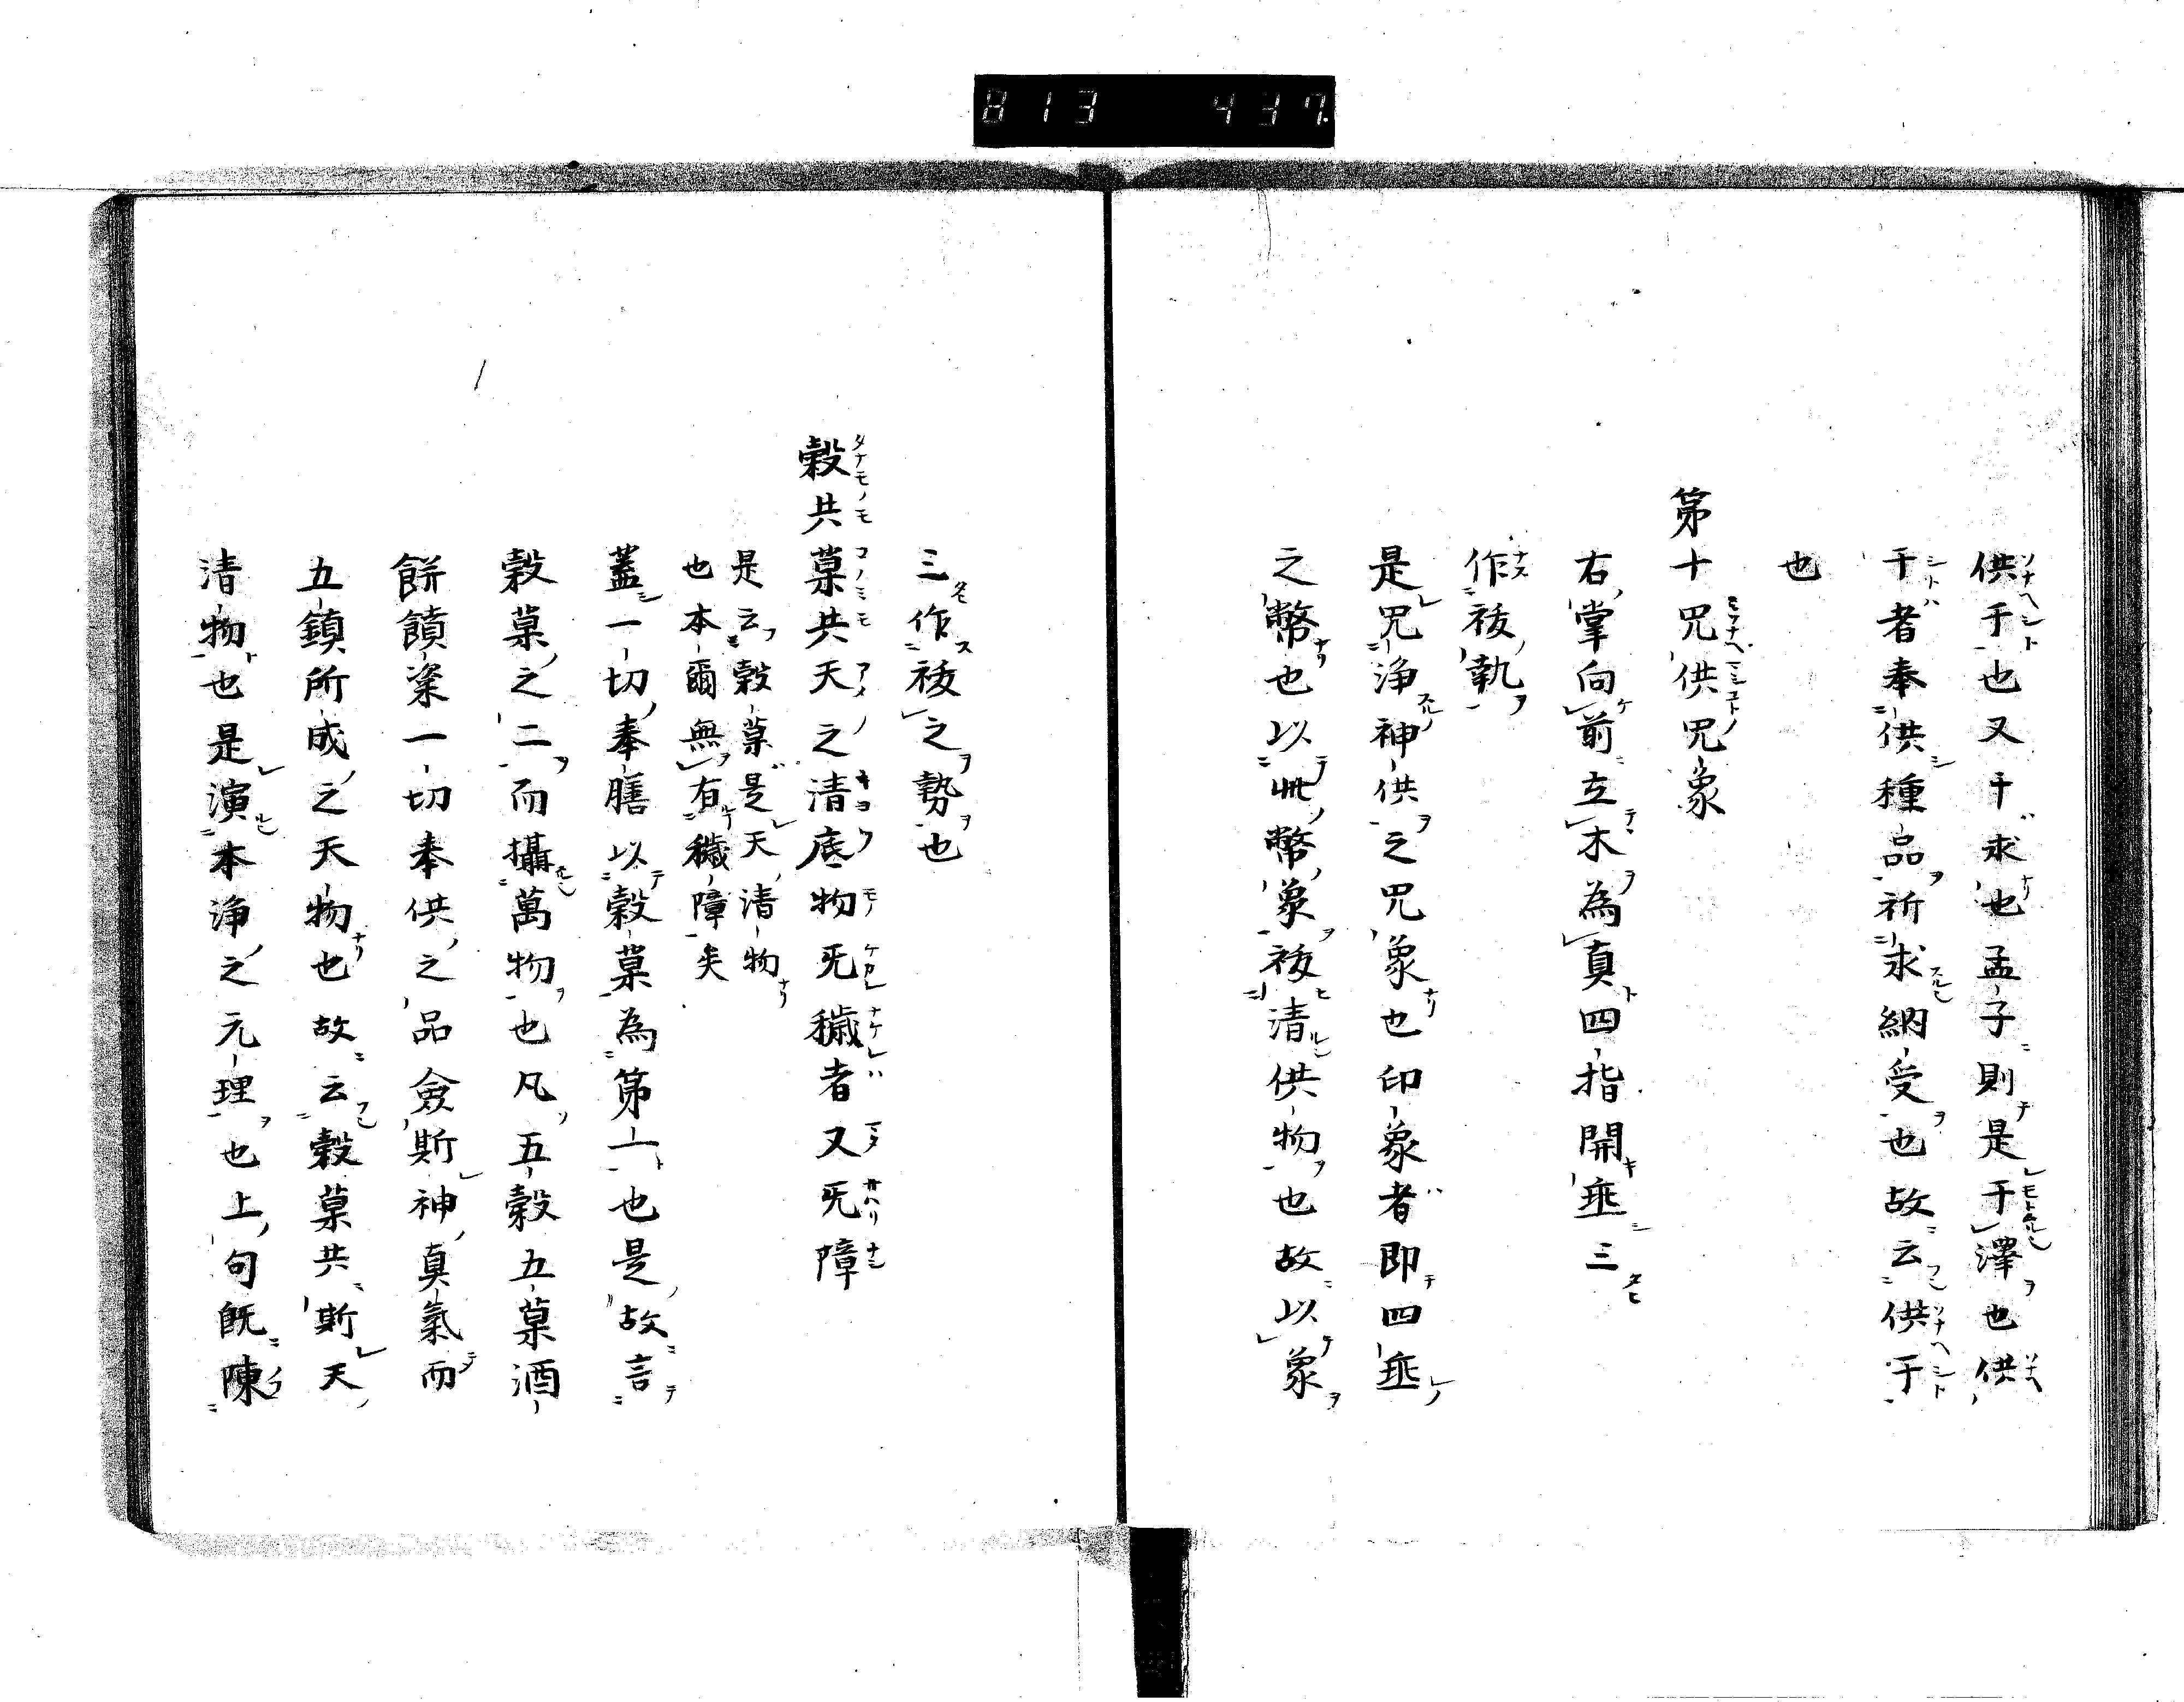 813 437
供于也又干求也孟子則是干澤也供
干者奉供種品祈求納受也故云供于
也
第十咒供咒象
右掌向前立木為真四指開垂三
作祓執
是咒浄神供之咒象也印象者即四垂
之幣也以此幣象祓清供物也故以象
三作祓之勢也
穀共菓共天之清底物旡穢者又旡障
是云穀菓是天清物
也本爾無有穢障矣
蓋一切奉膳以穀菓為第一也是故言
穀菓之二而攝萬物也凡五穀五菓酒
餅饋粢一切奉供之品僉斯神真氣而
五鎮所成之天物也故云穀菓共斯天
清物也是演本浄之元理也上句既陳